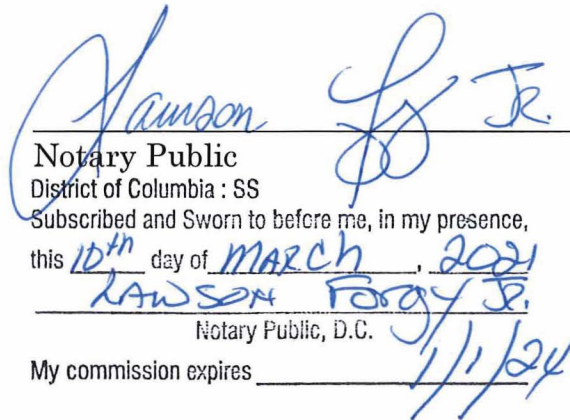 Lawson Jr.
Notary Public
District of Columbia : SS
Subscribed and Sworn to before me, in my presence,
this 10th day of MARCH, 2021
LAWSON Forgy JR.
Notary Public, D.C.
My commission expires 1/1/24